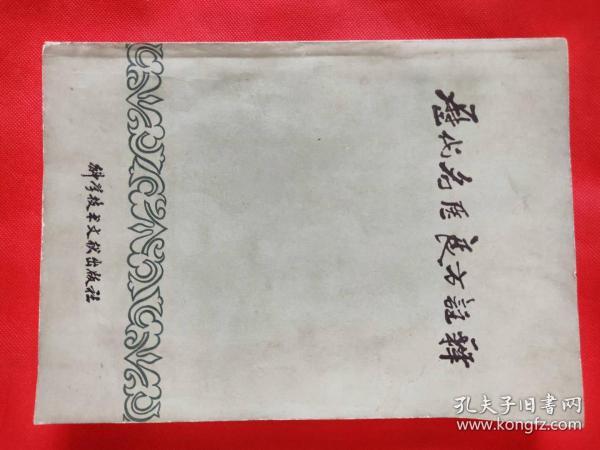 歷代名医良方註释
科学技术文献出版社
孔夫子旧书网
www.kongfz.com